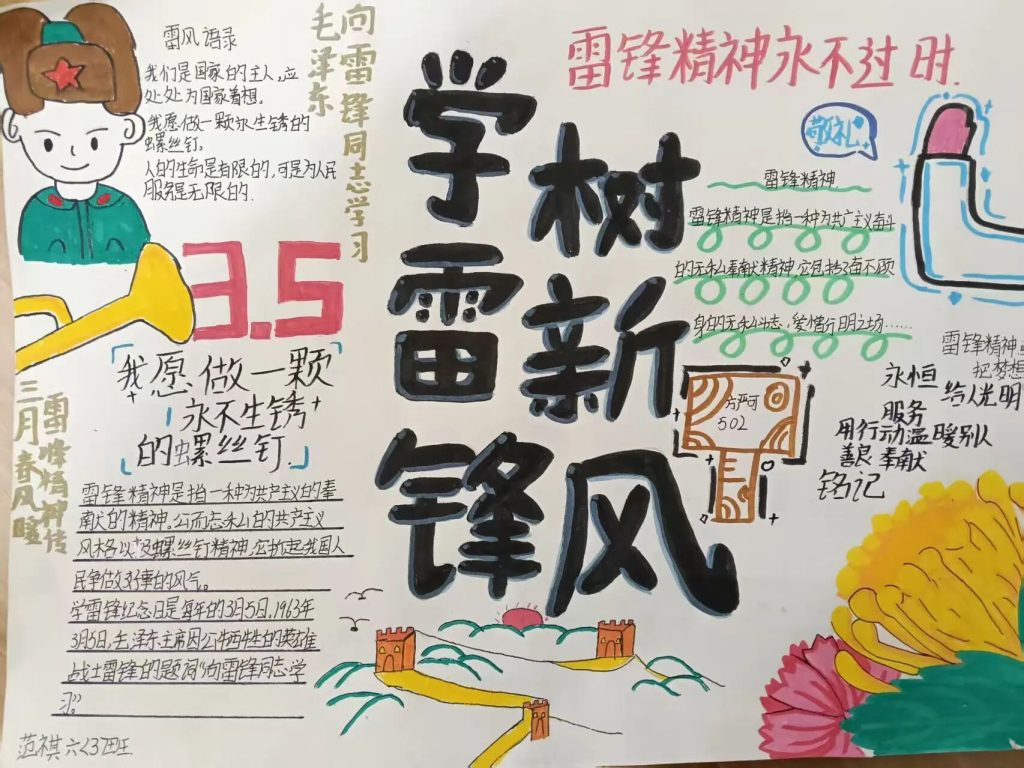 雷风语录
我们是国家的主人,应
处处为国家着想.
我愿做一颗永生锈的
螺丝钉.
人的生命是有限的,可是为人民
服务是无限的.
向雷锋同志学习
毛泽东
学雷锋
树新风
雷锋精神永不过时.
敬礼
雷锋精神.
雷锋精神是指一种为共产主义奋斗
的无私奉献精神,它包括
身的无私斗志,爱憎行明之场……
3.5
我愿做一颗
永不生锈
的螺丝钉.
雷锋精神传
三月春风暖
雷锋精神
把梦想
永恒
给人光明
服务
用行动温暖别人
善良 奉献
铭记
502
雷锋精神是指一种为共产主义的奉
献的精神,公而忘私的共产主义
风格以及螺丝钉精神,它掀起我国人
民争做好事的风气。
学雷锋纪念日是每年的3月5日,1963年
3月5日,毛泽东主席因公牺牲的英雄
战士雷锋的题词“向雷锋同志学
习。”
范祺 六<3>班